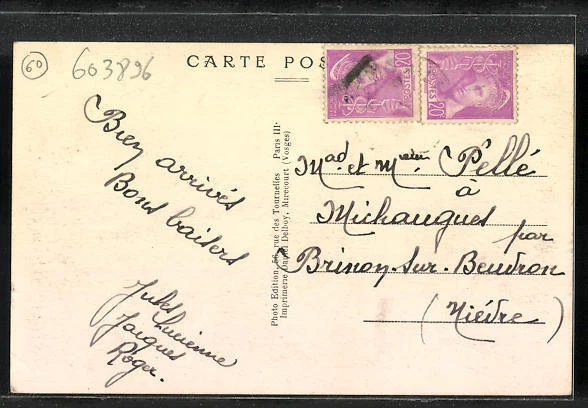 60
603896
CARTE POS
POSTES 20
POSTES 20
Bien arrivés
Bons baisers
Jules Lucienne
Jacques
Roger.
Photo Edition, 56, rue des Tournelles Paris III·
Imprimerie Daniel Delboy, Mirecourt (Vosges)
Mad et Pellé
à
Michaugues par
Brinon-sur-Beuvron
(Nièvre)